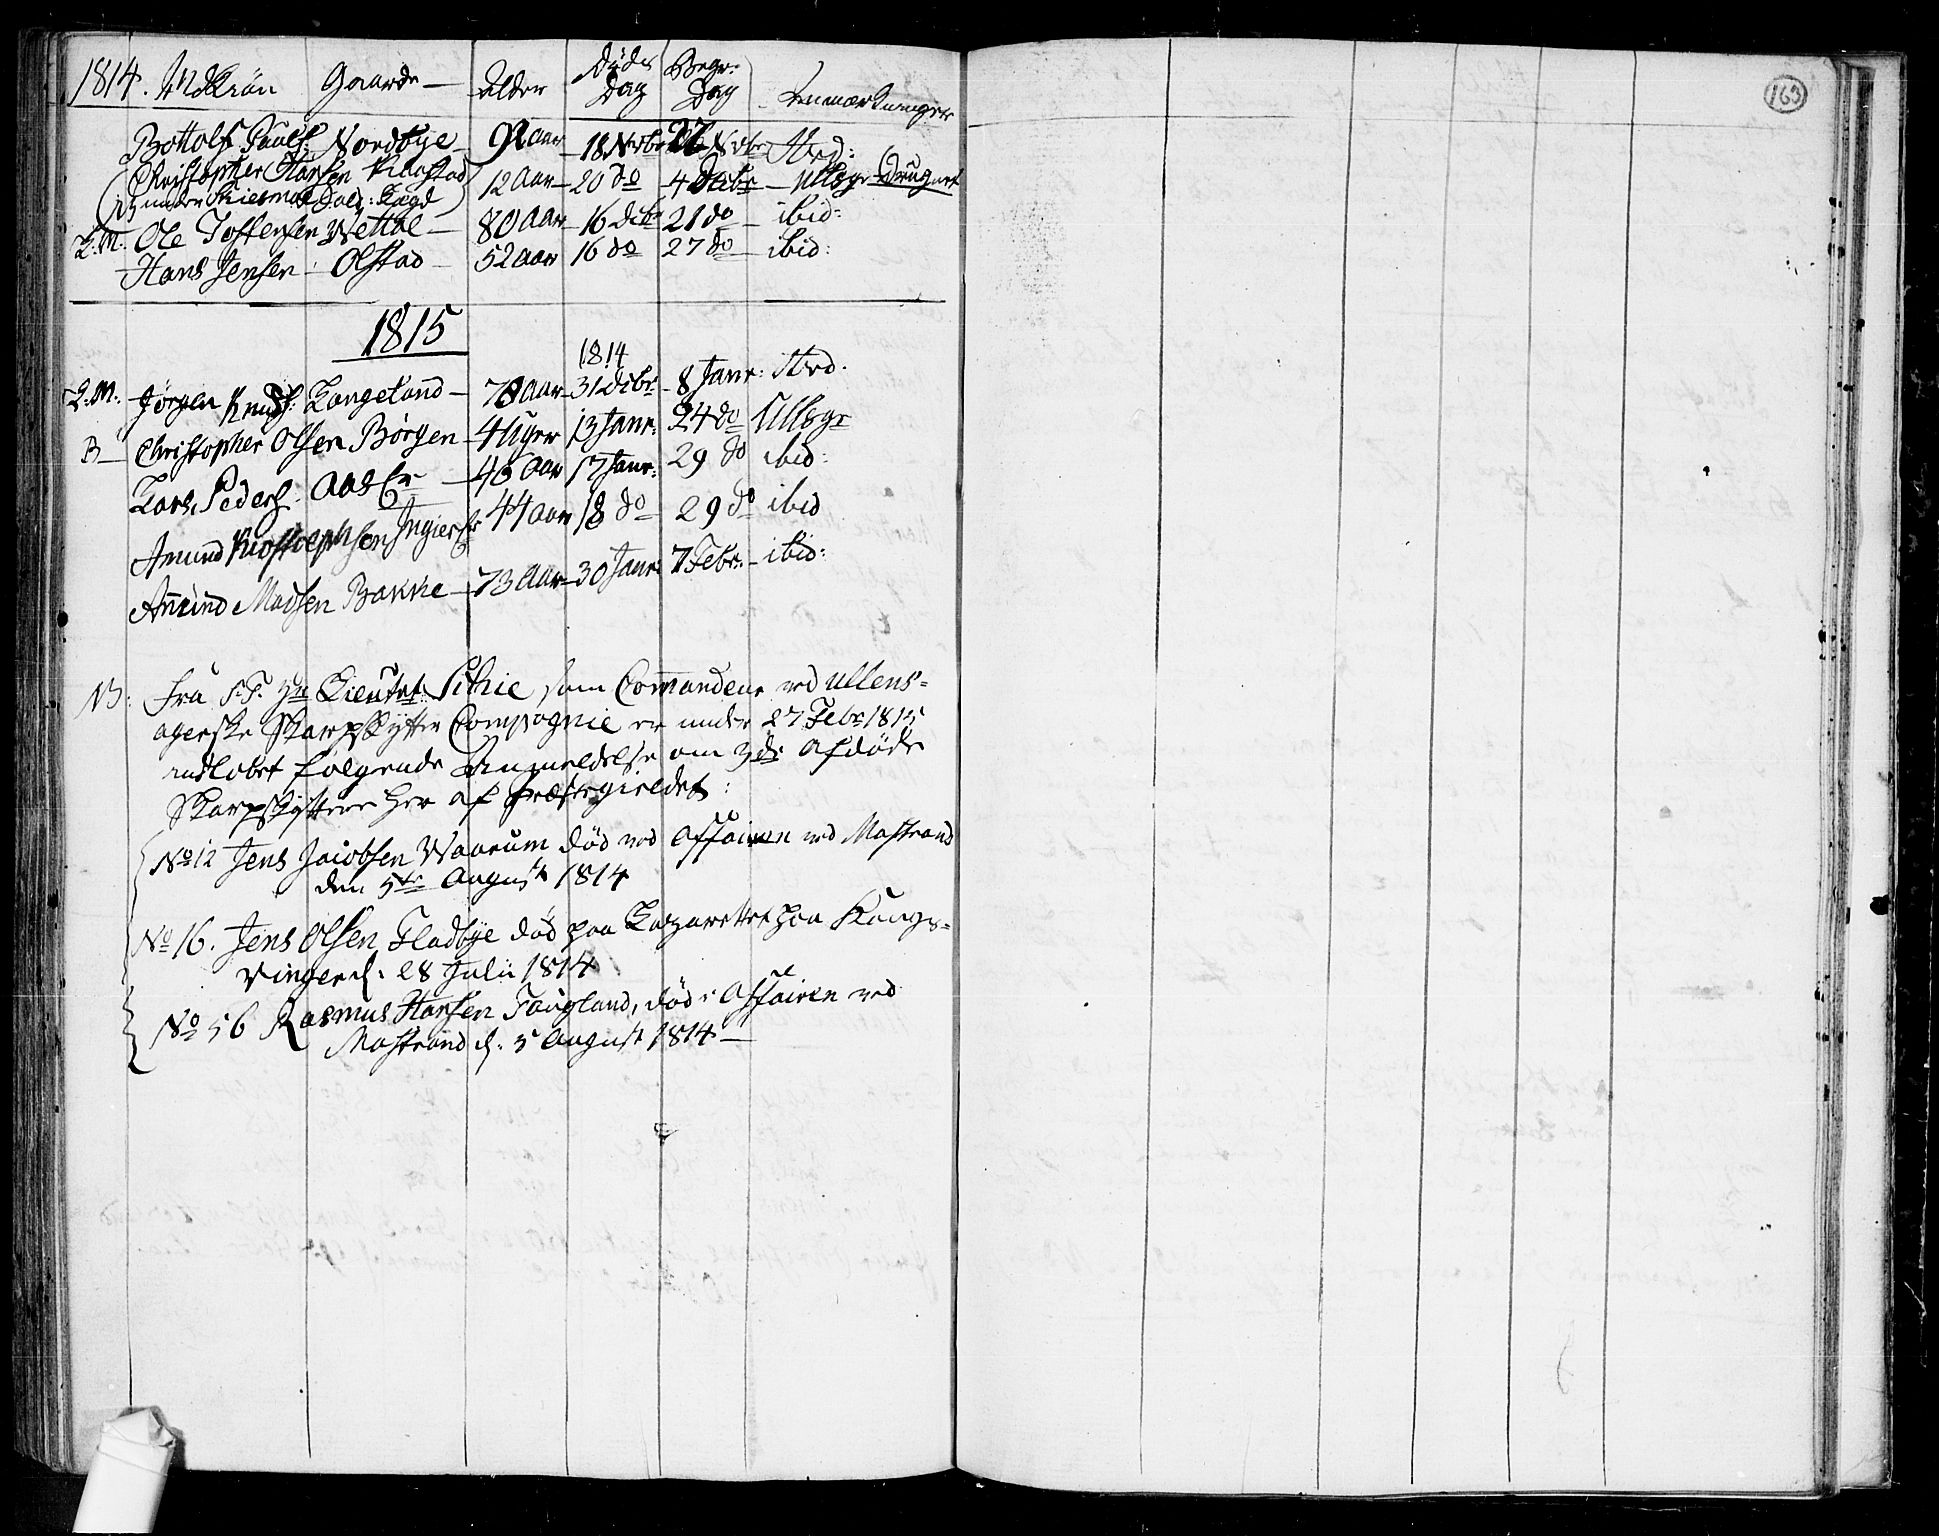 1814. Mdkiön Gaarde — Alder Døds Dag Begr: Dag Anmærkninger
Bottolf Pauls: Nordbye — 92 Aar — 18 Novbr 27 Novbr
Christopher Hansen Kaastad 12 Aar — 20 do 4 Decbr — Ullsgr (Drugnet
NB under
L.M. Ole Tostensen Wettal — 80 Aar — 16 Dcbr 21 do — ibid:
Hans Jensen — Olstad — 52 Aar 16 do 27 do — ibid:
1815
1814
L.M. Jørgen Knuds: Langeland — 78 Aar — 31 Dcbr — 8 Janr:
B — Christopher Olsen Børgen — 4 Uger 13 Janr: 24 do Ullsgr
Lars Peders: Aas Er — 46 Aar 17 Janr: 29 do ibid:
Amund Kristophsen Ingier Er 44 Aar 18 do — 29 do ibid
Amund Madsen Bakke — 73 Aar — 30 Janr: 7 Febr. — ibid:
NB: Fra S.T. Hr Lieutnt: Sibrie, som Commandeur ved Ullens-
agerske Skarpskytter Compagnie er under 27 Febr 1815
indløbet følgende Anmeldelse om 3de afdøde
Skarpskyttere her af Præstegieldet:
No 12 Jens Jacobsen Waarum død ved Affairen ved Mastrand
den 5te August 1814
No 16. Jens Olsen Fladbye død paa Lazarettet paa Kongs-
vinger d. 28 Julii 1814
No 56 Rasmus Hansen Haugland, død i Affairen ved
Mastrand d. 5 August 1814 —
163